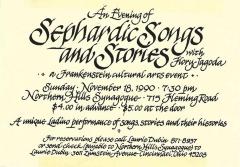 An Evening of
Sephardic Songs
and Stories with
Flory Jagoda
a Frankenstein cultural arts event
Sunday · November 18, 1990 · 7:30 pm
Northern Hills Synagogue · 715 Fleming Road
$4.00 in advance · $5.00 at the door
A unique Ladino performance of songs, stories and their histories
For reservations please call Laurie Dubin
or send check (payable to Northern Hills Synagogue) to
Laurie Dubin Avenue · Cincinnati, Ohio